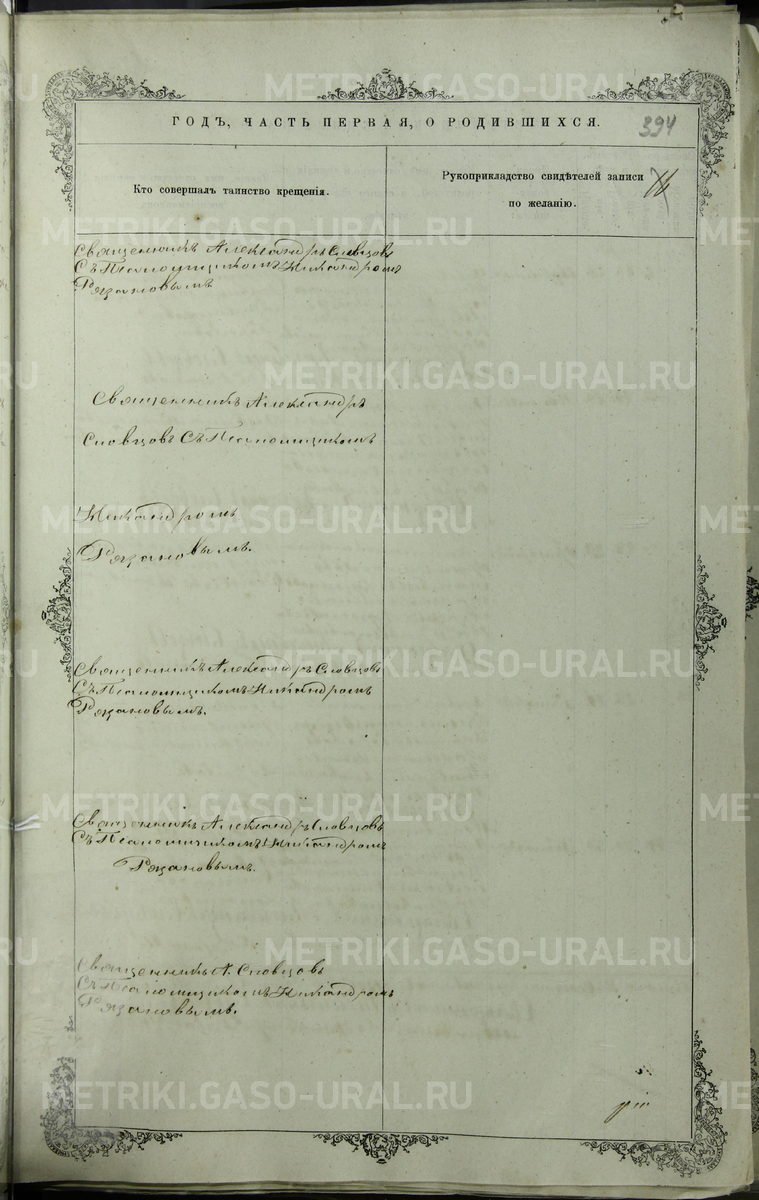 ГОДЪ, ЧАСТЬ ПЕРВАЯ, О РОДИВШИХСЯ.
394
Кто совершалъ таинство крещенія.
Рукоприкладство свидѣтелей записи
по желанію.
Священникъ Александръ Словцовъ
Съ Псаломщикомъ Никандромъ
Рязановымъ
Священникъ Александръ
Словцовъ Съ Псаломщикомъ
Никандромъ
Рязановымъ.
Священникъ Александръ Словцовъ
Съ Псаломщикомъ Никандромъ
Рязановымъ.
Священникъ Александръ Словцовъ
Съ Псаломщикомъ Никандромъ
Рязановымъ.
Священникъ А. Словцовъ
Съ Псаломщикомъ Никандромъ
Рязановымъ.
METRIKI.GASO-URAL.RU